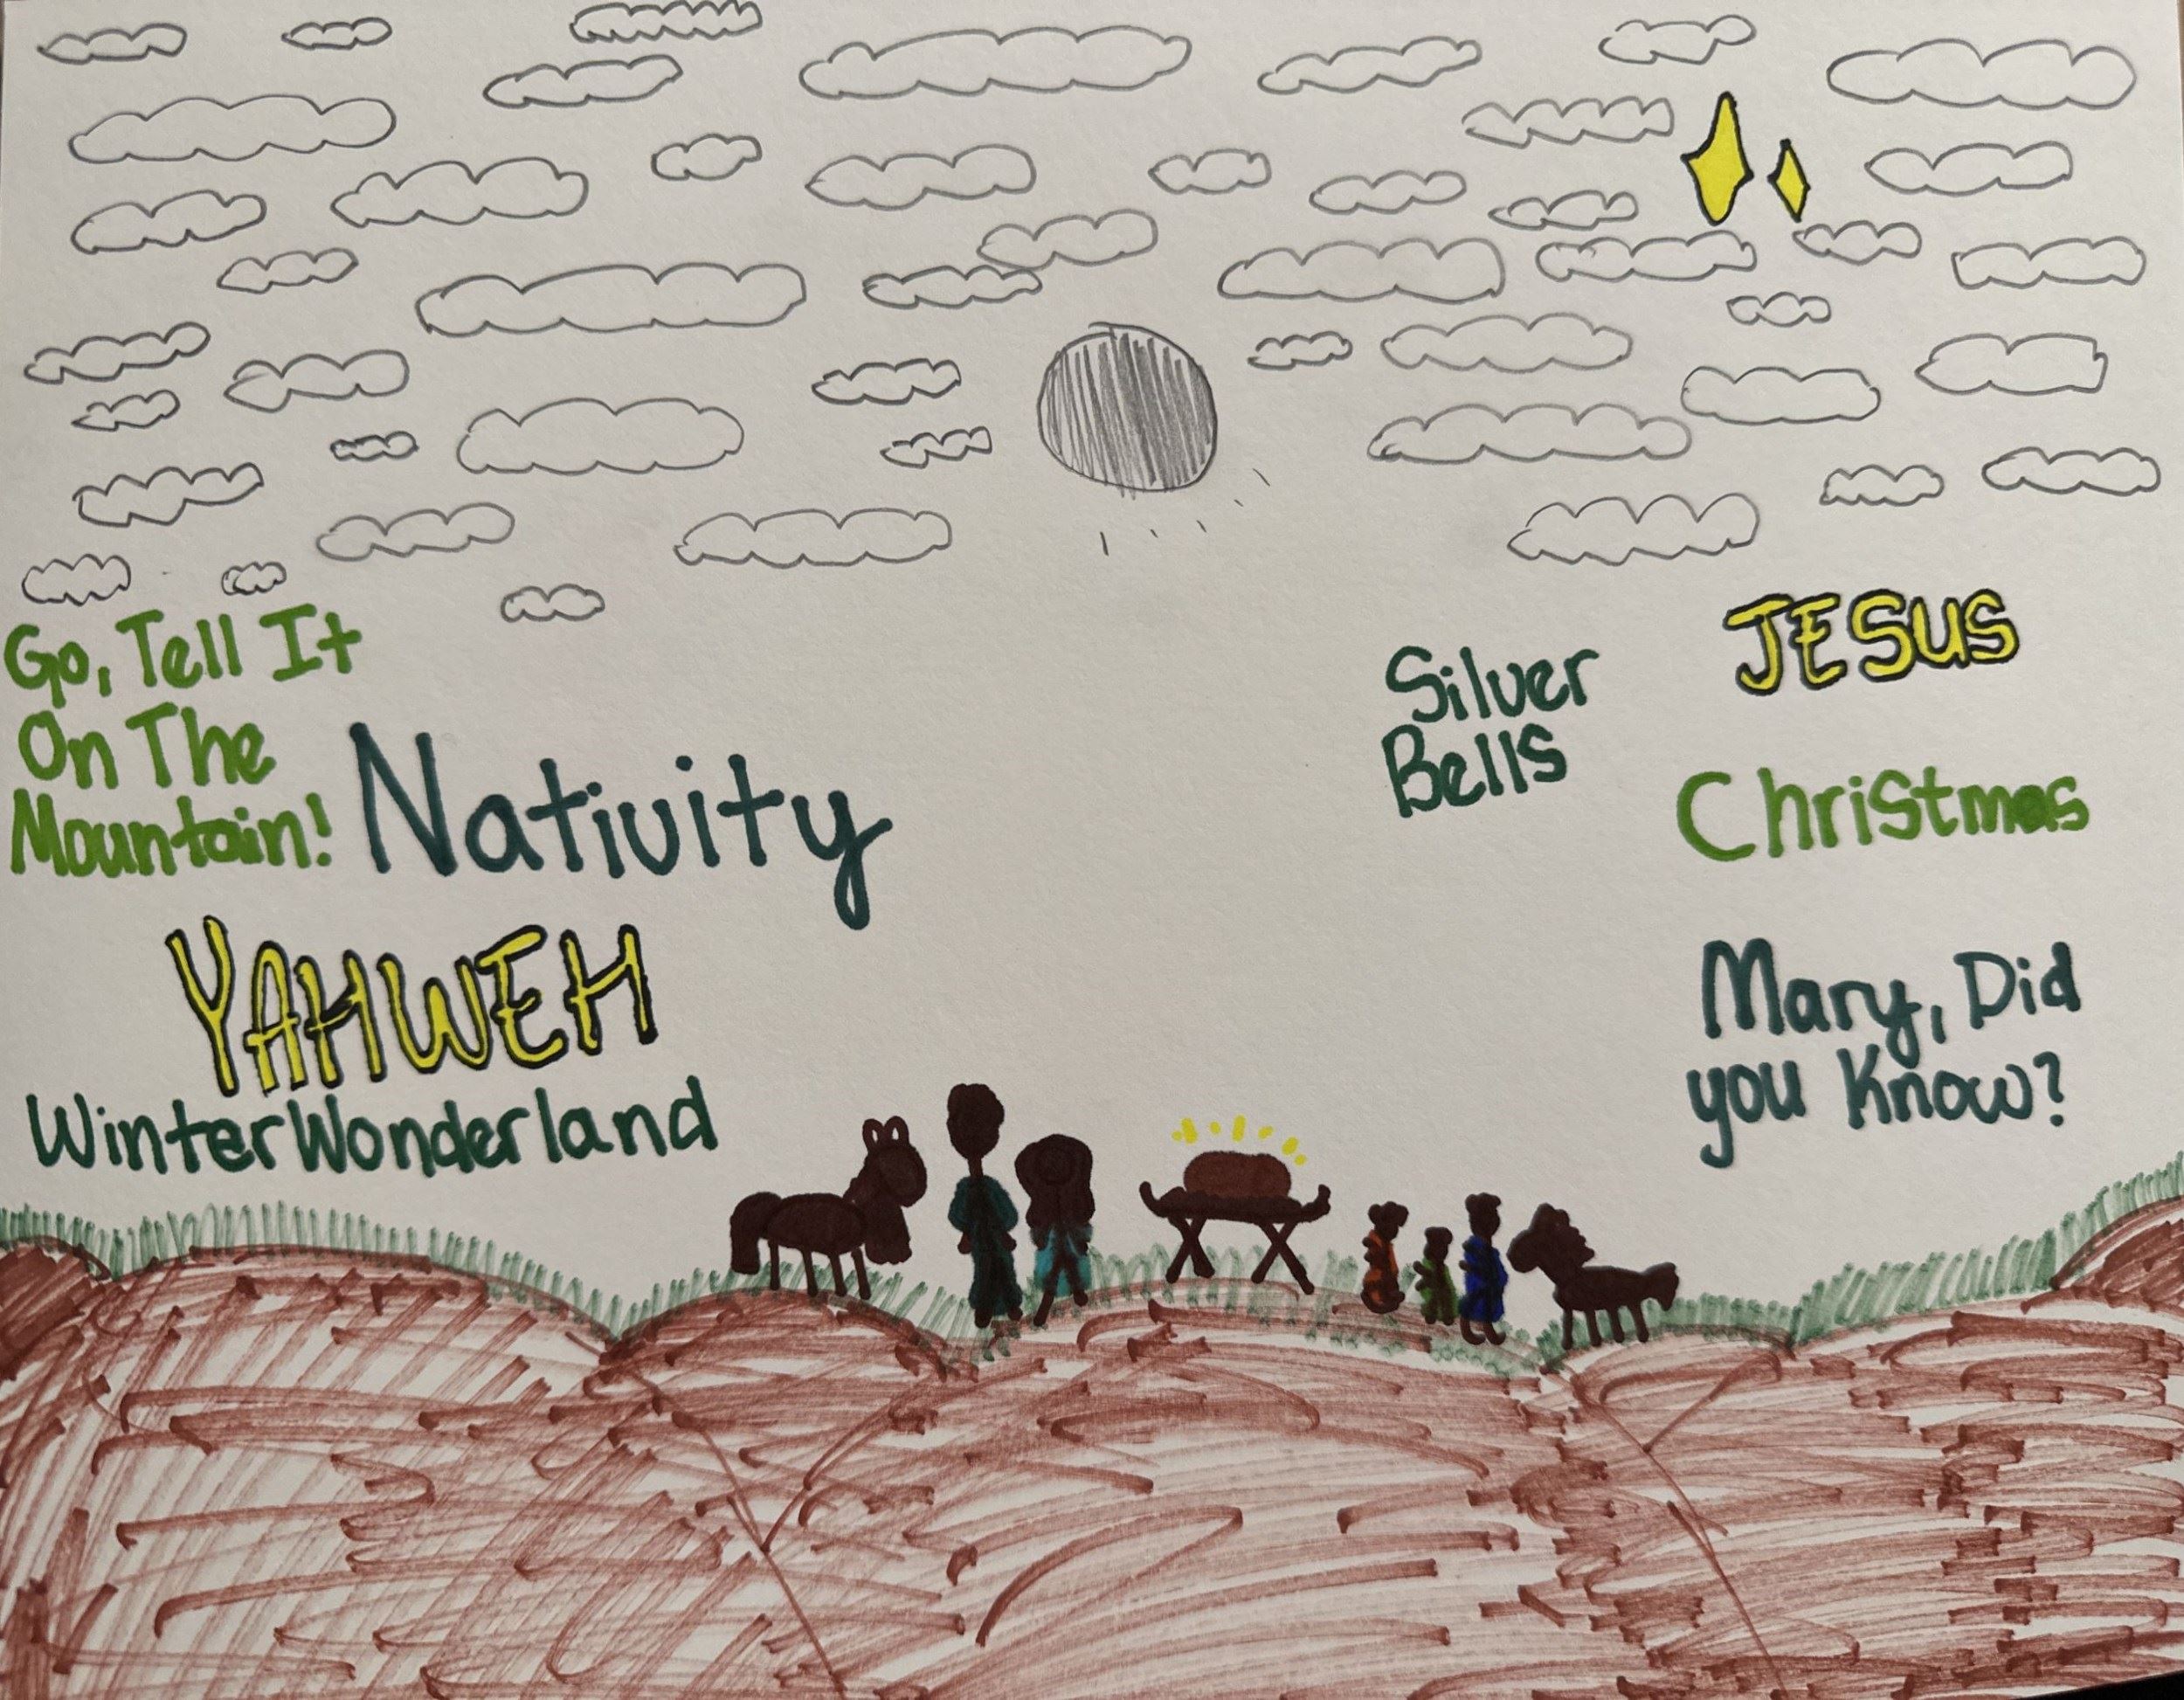 Go, Tell It
On The
Mountain!
Nativity
YAHWEH
Winter Wonderland
Silver
Bells
JESUS
Christmas
Mary, Did
you Know?